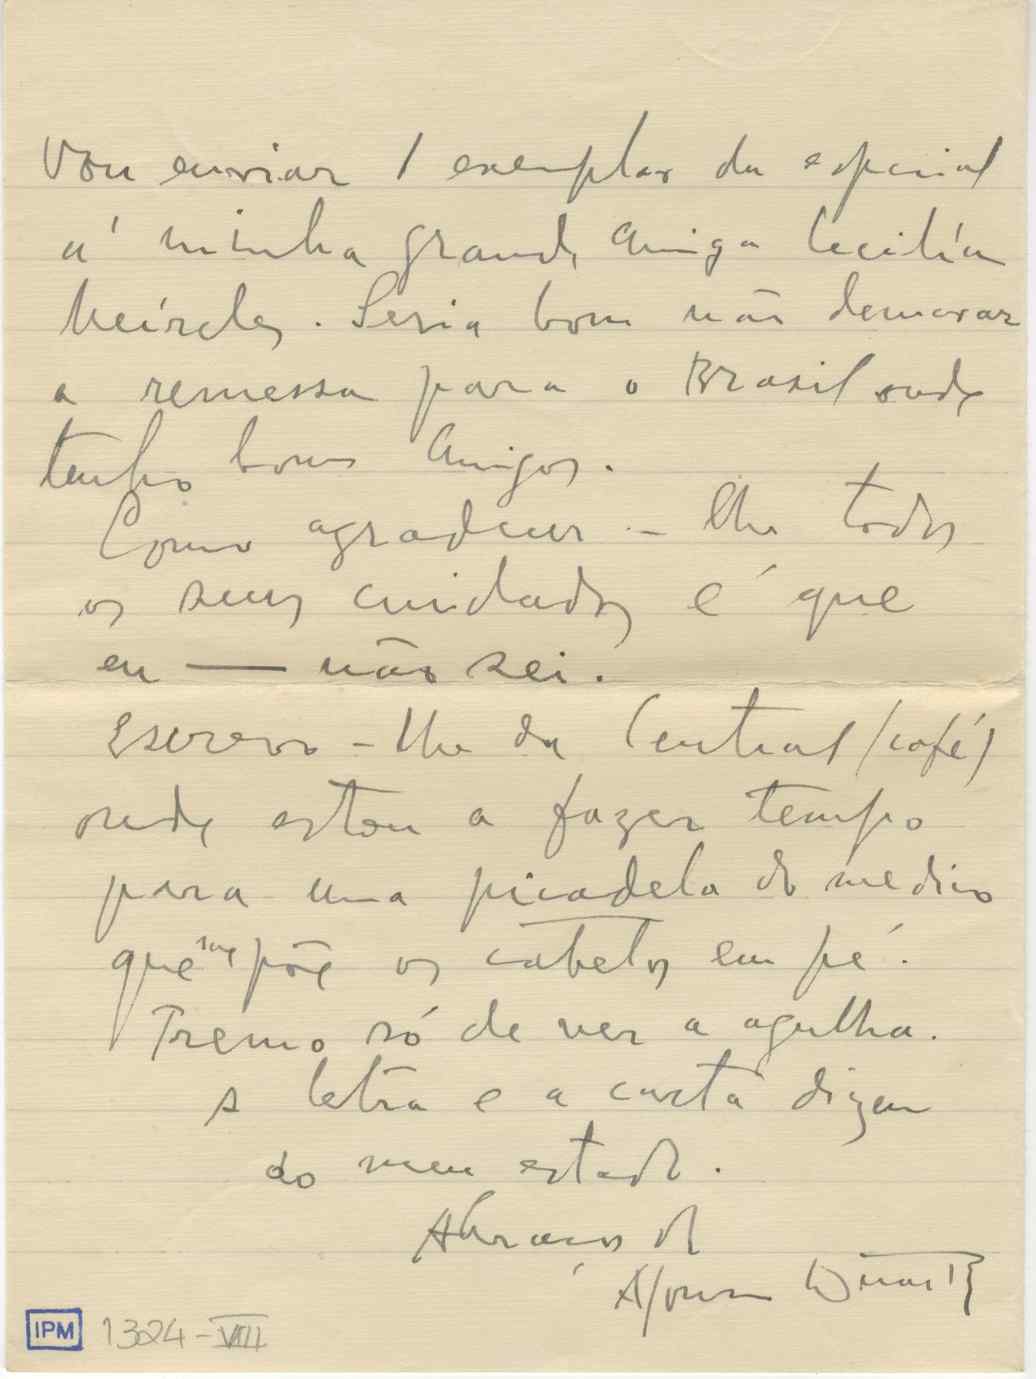 Vou enviar 1 exemplar da especial
á minha grande Amiga Cecilía
Meíreles. Seria bom não demorar
a remessa para o Brasil onde
tenho bons Amigos.
Como agradecer-lhe todos
os seus cuidados é que
eu — não sei.
Escrevo-lhe da Central (café)
onde estou a fazer tempo
para uma picadela do medico
que me põe os cabelos em pé.
Tremo só de ver a agulha.
A letra e a carta dizem
do meu estado.
Abraços do
Afonso Duarte
IPM 1324-VIII